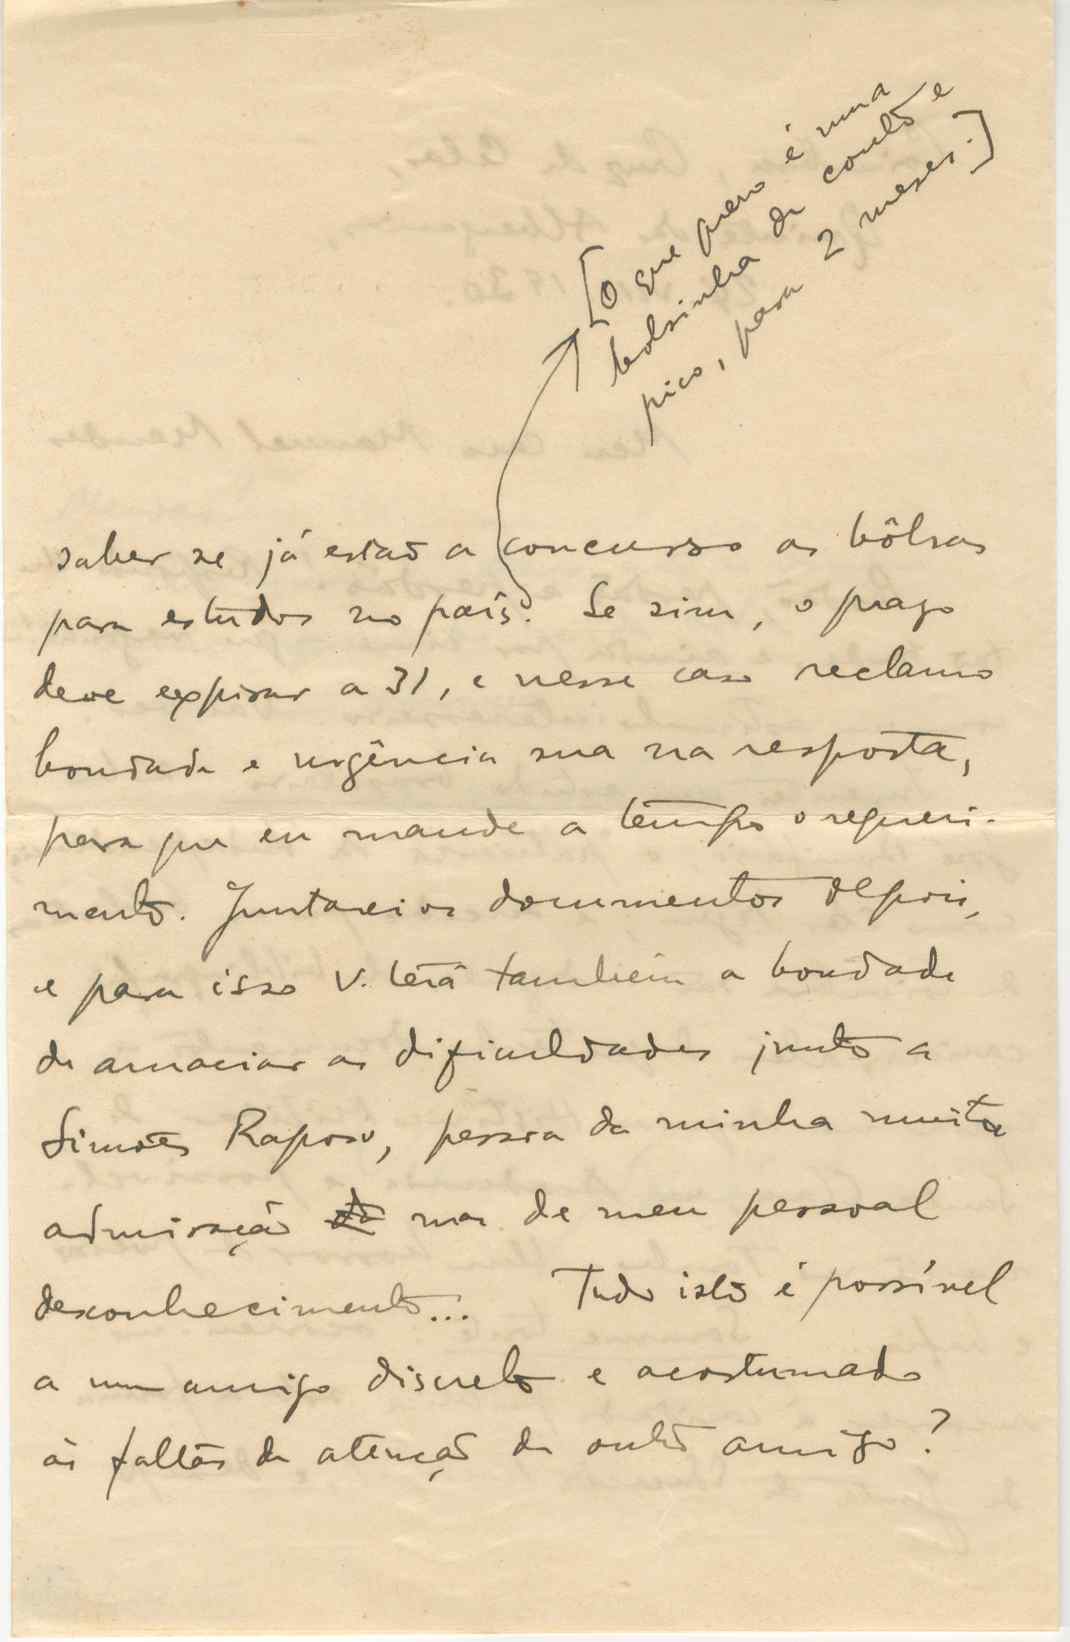 [O que quero é uma
bolsinha de conto e
pico, para 2 meses.]
saber se já estão a concurso as bôlsas
para estudos no país. Se sim, o prazo
deve expirar a 31, e nesse caso reclamo
bondade e urgência sua na resposta,
para que eu mande a tempo o requeri-
mento. Juntarei os documentos depois,
e para isso V. terá também a bondade
de amaciar as dificuldades junto a
Simões Raposo, pessoa da minha muita
admiração da mas de meu pessoal
desconhecimento... Tudo isto é possível
a um amigo discreto e acostumado
às faltas de atenção de outro amigo?